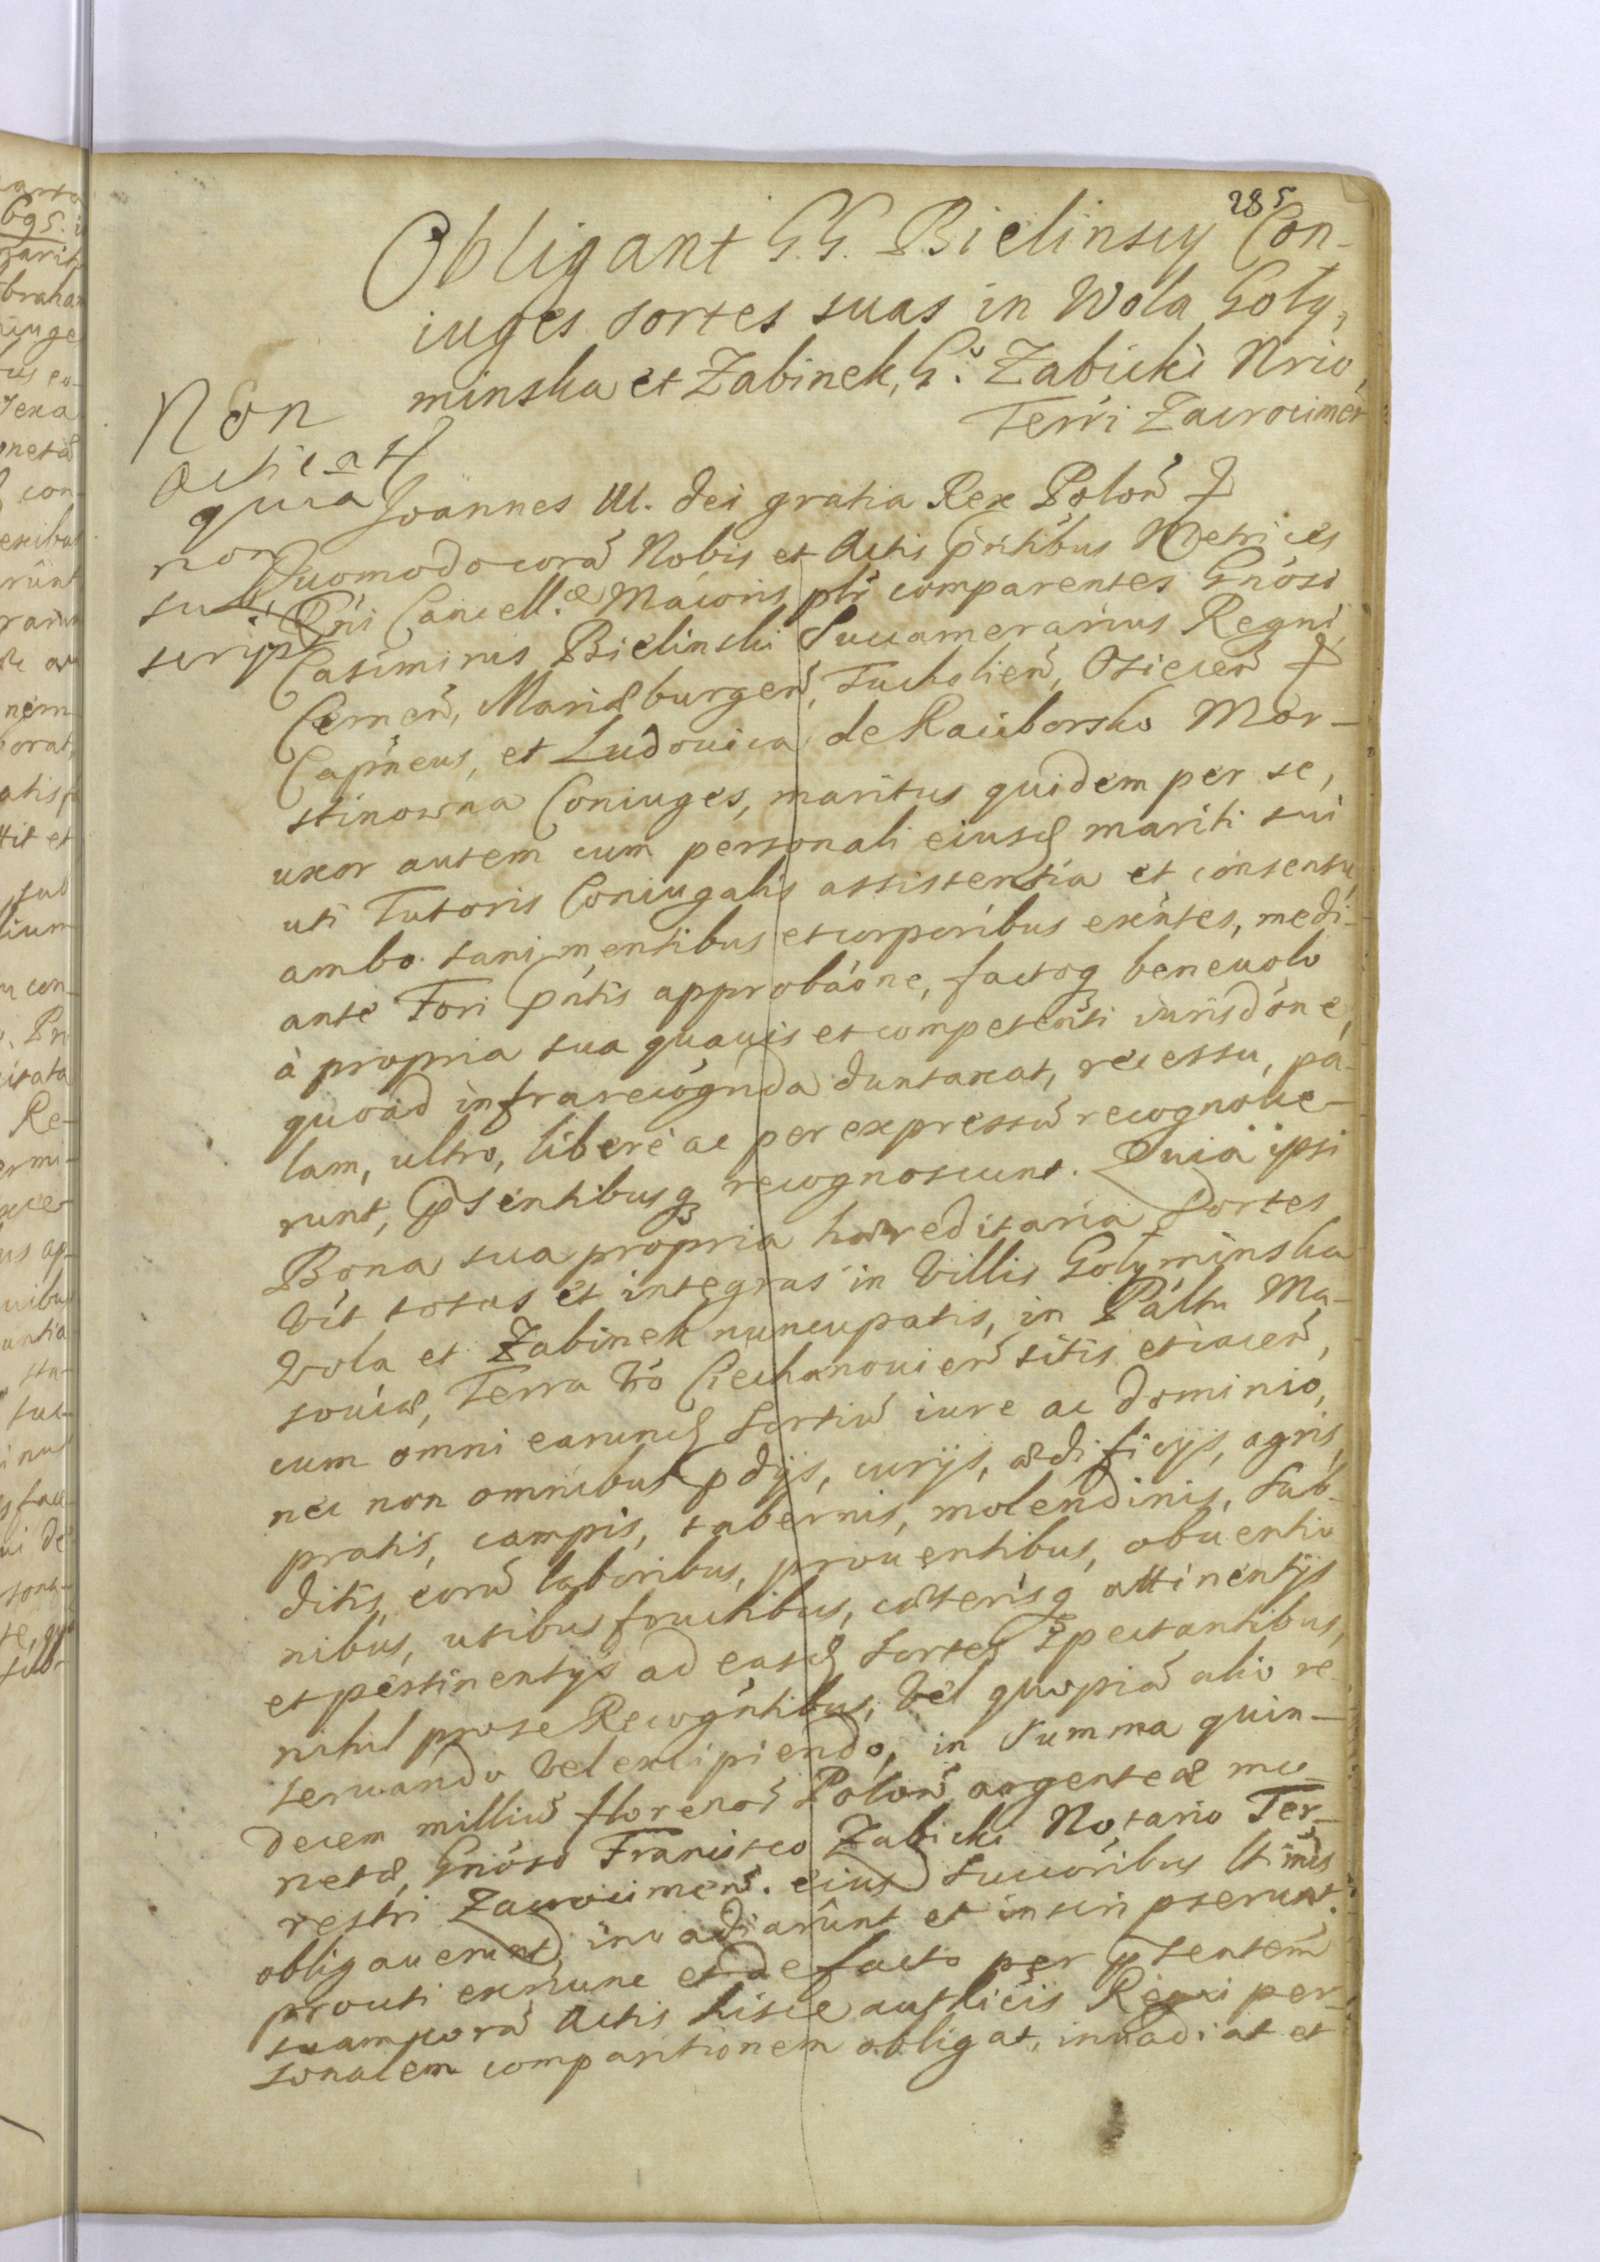 285
Obligant G.G. Bielinscy Con-
iuges sortes suas in Wola Goly,
minska et Zabinek, G.º Zabicki Nrio,
Terri Zacrocimeñ
Non
acticat
quia
non
sub,
script
Joannes III. dei gratia Rex Poloñ
Quomodo corã Nobis et Actis pñtibus Metrices
Rñi Cancell.æ Maioris plr comparentes Gñosi
Casimirus Bielinski Succamerarius Regni,
Cerneñ, Mariæburgeñ, Tucholieñ, Osieceñ
Capñeus, et Ludouica de Raciborsko Mor-
stinowna Coniuges, maritus quidem per se,
uxor autem cum personali eiusd mariti sui
uti Tutoris Coniugalis assistentia et consensu,
ambo sani mentibus et corporibus exñtes, medi-
ante Fori pñtis approbãone, factoq beneuolo
à propria sua quauis et competeñti iurisdõne,
quoad infrarecogñda duntaxat, recessu, pa-
lam, ultro, liberè ac per expressũ recognoue-
runt, psentibusq recognoscunt. Quia ipsi
Bona sua propria hæreditaria Sortes
Vit totas et integras in Villis Golyminska
Wola et Zabinek nuncupatis, in Pãltu Ma-
souiæ, Terra Vo Ciechanouieñ sitis et iaceñ,
cum omni earund Sortiũ iure ac dominio,
nec non omnibus pdijs, curijs, ædificijs, agris,
pratis, campis, tabernis, molendinis, Sub-
ditis, eorũ laboribus, prouentibus, obuentio
nibus, utibus fructibus, cæterisq attinentijs
et pertinentijs ad easd Sortes Spectantibus,
nihil pro se Recogñtibus, Vel quopiã alio re-
seruando Vel excipiendo, in Summa quin-
decem milliũ florenor Poloñ argenteæ mo-
netæ, Gñoso Francisco Zabicki Notario Ter-
restri Zacrocimeñ. eiusd Succõribus ltimis
obligauerunt, inuadiarunt et inscripserunt.
prouti exnunc et de facto per psentem
suam corã Actis hisce authẽcis Regni per-
sonalem comparitionem obligat, inuadiat et